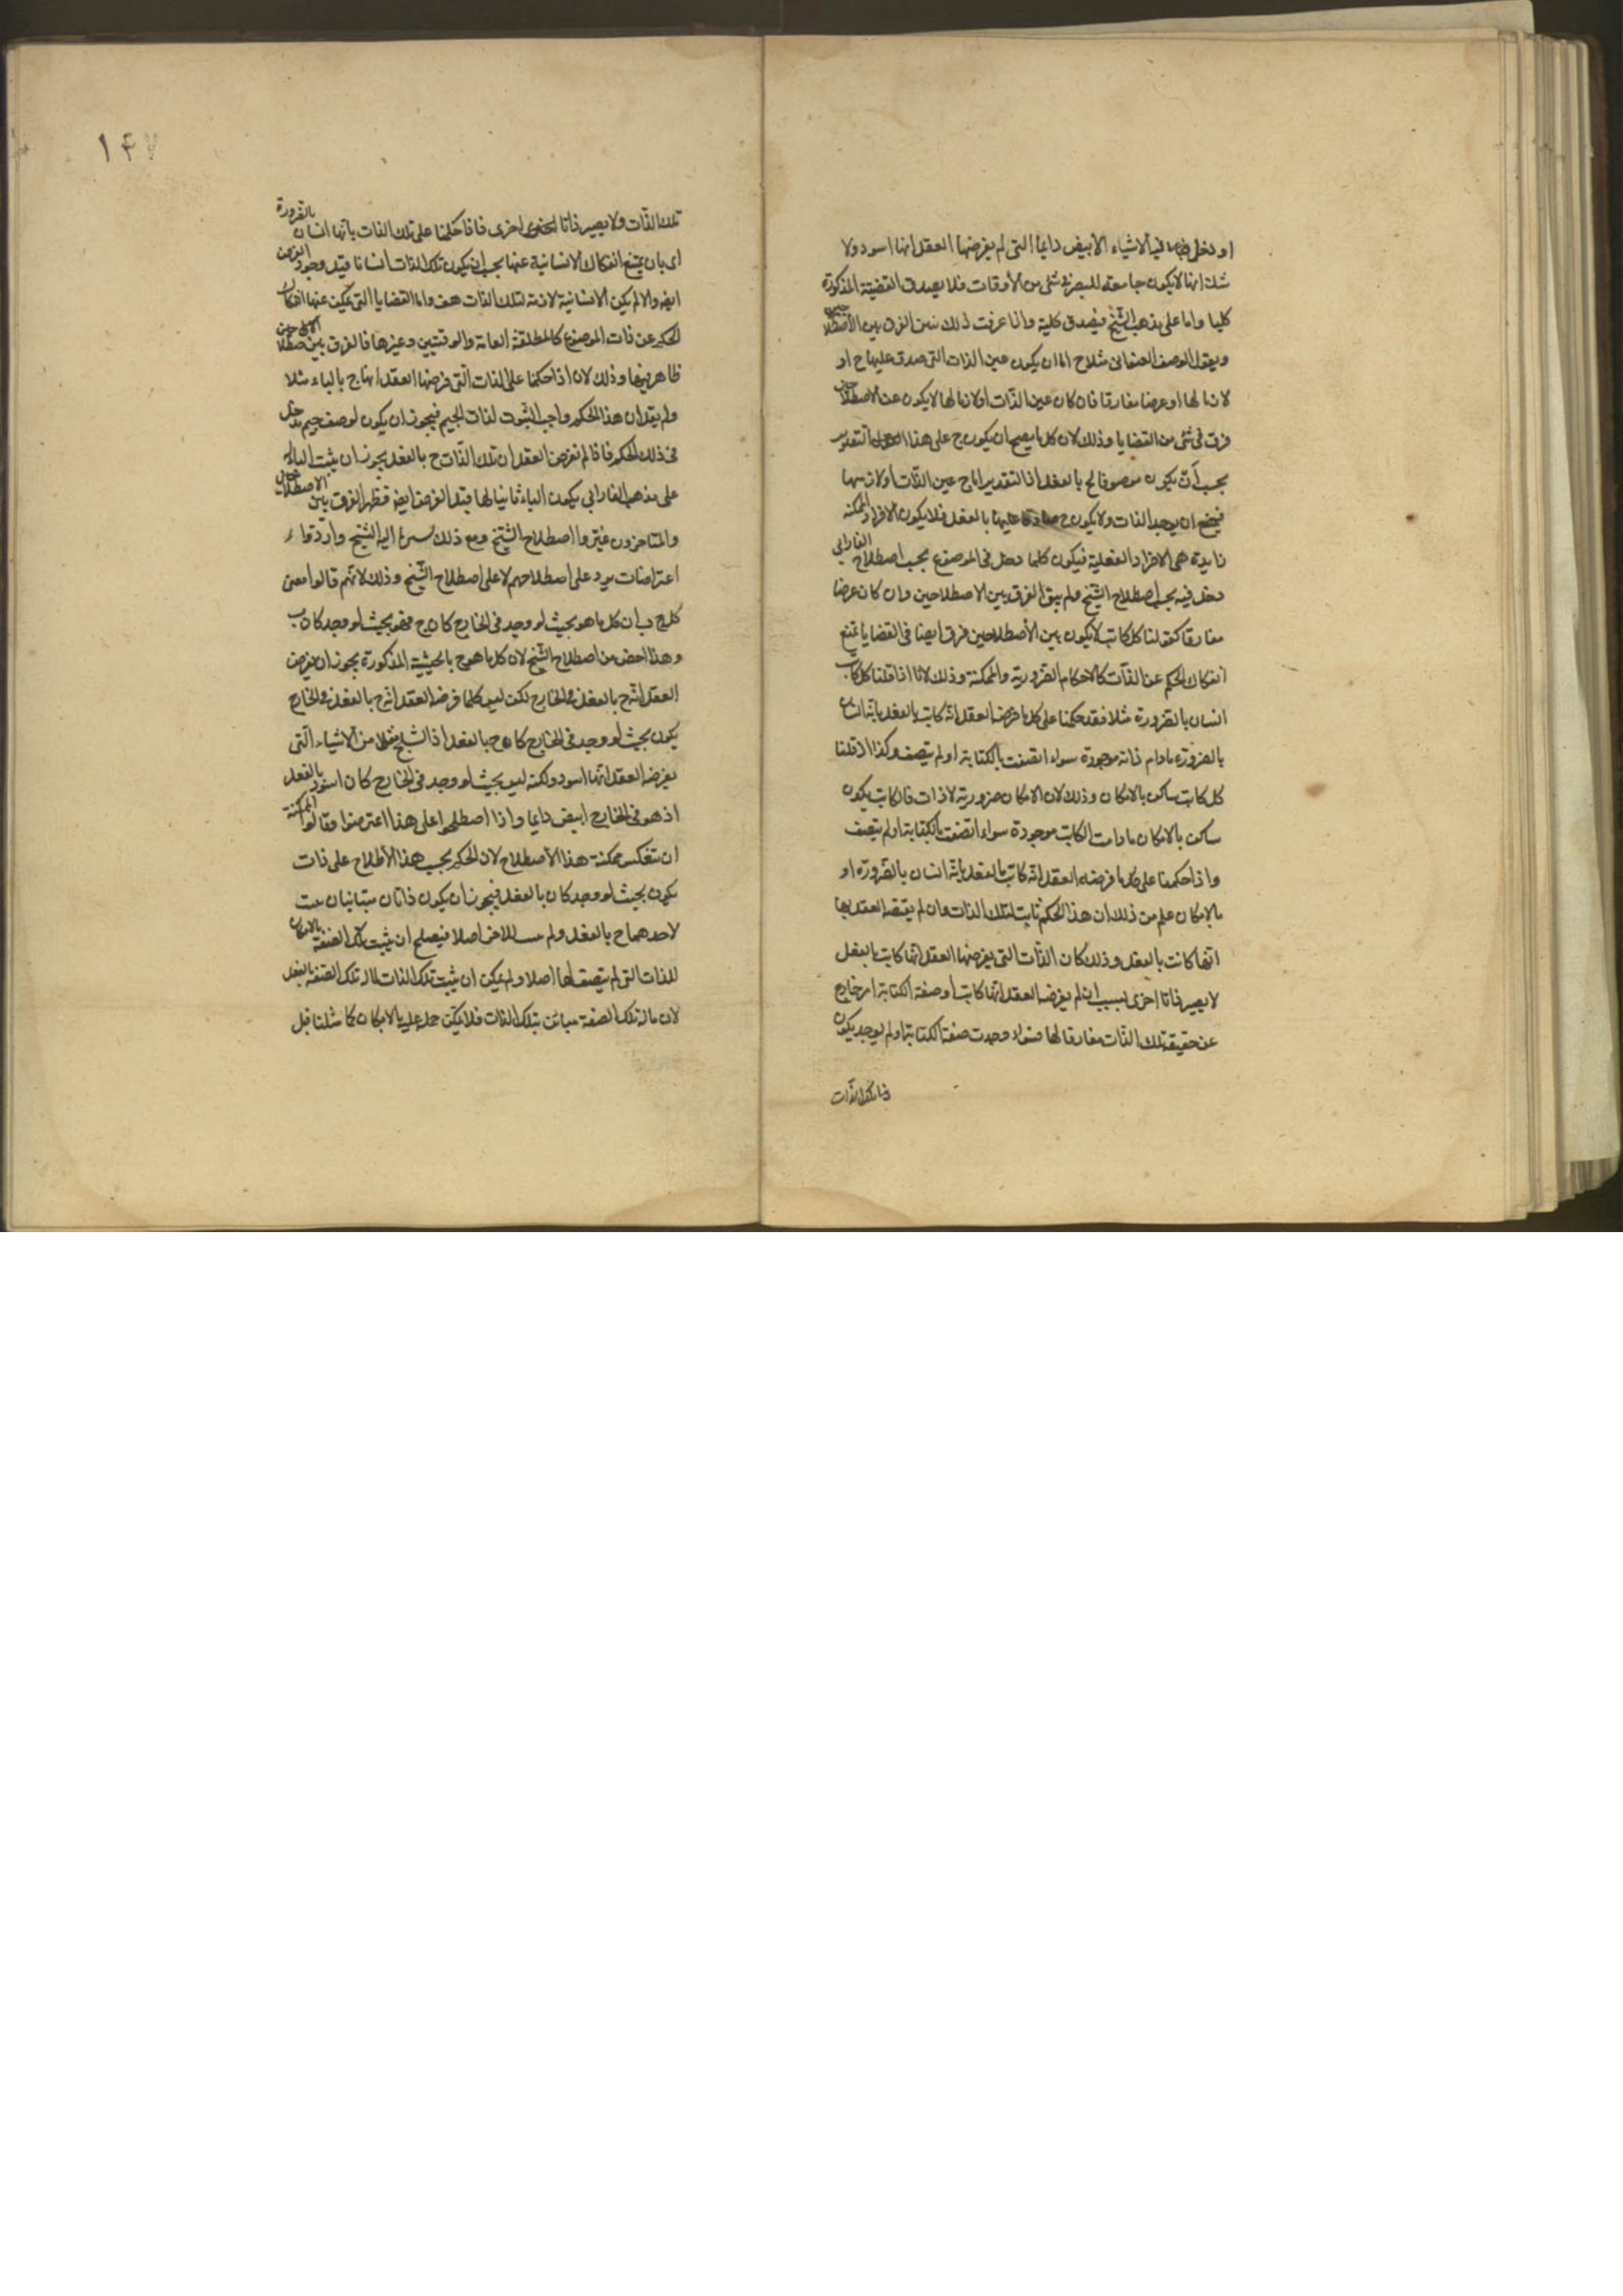 او دخل فيه الاشياء الأبيض دايما التى لم يفرضها العقل انها اسود ولا
شك انها لا يكون جامعة للبصر فى شئ من الأوقات فلا يصدق القضيّة المذكورة
كليا واما على مذهب الشّيخ فيصدق كلية واذا عرفت ذلك فنبين الفرق بين الأصطلاحين
ويقول الوصف العنوانى مثلا ج اما ان يكون عين الذات التى صدق عليها ج او
لازما لها او عرضا مفارقا فان كان عين الذّات او لازما لها لا يكون عن الاصطلاحين
فرق فى شئ من القضايا وذلك لان كل ما يصح ان يكون ج على هذا التقدير
يجب ان يكون موصوفا لج بالفعل اذ التقدير اما ج عين الذّات او لازمها
فيمتنع ان يوجد الذات ولا يكون ج صادقا عليها بالفعل فلا يكون الافراد الممكنة
زايدة هى الافراد الفعلية فيكون كلما دخل فى الموضوع بحسب اصطلاح الفارابى
دخل فيه بحسب اصطلاح الشّيخ ولم يبق الفرق بين الاصطلاحين وان كان عرضا
مفارقا كقولنا كل كاتب لا يكون بين الأصطلاحين فرق ايضا فى القضايا يمتنع
انفكاك الحكم عن الذّات كالاحكام الضّروريّة والممكنة وذلك لانّا اذا قلنا كل كاتب
انسان بالضّرورة مثلا فقد حكمنا على كل ما فرضه العقل انّه كاتب بالفعل بانّه انسان
بالضرورة مادام ذاته موجودة سواء اتصفت بالكتابة او لم يتصف وكذا اذ قلنا
كل كاتب ساكن بالامكان وذلك لان الامكان ضرورية لاذات فالكاتب يكون
ساكن بالامكان مادامت الكاتب موجودة سواء اتصفت بالكتابة او لم يتصف
واذا حكمنا على كل ما فرضه العقل انّه كاتب بالفعل بانّه انسان بالضّرورة او
بالامكان علم من ذلك ان هذا الحكم ثابت لتلك الذات وان لم يتصفه العقل بها
انها كانت بالفعل وذلك كان الذّات التى يفرضها العقل انّها كاتب بالفعل
لا يصير ذاتا اخرى بسبب ان لم يفرض العقل انّها كاتب او صفة الكتابة امر خارج
عن حقيقة تلك الذّات مفارقا لها فسواء وجدت صفة الكتابة او لم يوجد يكون
الذّات
١٤٧
تلك الذّات ولا يصير ذاتا اخرى فاذا حكمنا على تلك الذات بانّها انسان بالضّرورة
اى بان يمتنع انفكاك الانسانية عنها يجب ان يكون تلك الذات انسانا قبل وجود الفرض
ايضا والا لم يكن الانسانية لازمة لتلك الذات هف واما القضايا التى يمكن عنها انفكاك
الحكم عن ذات الموضوع كالمطلقة العامة والوقتيين وغيرها فالفرق بين الاصطلاحين
ظاهر فيها وذلك لان اذا حكمنا على الذات التى فرضها العقل انها ج بالباء مثلا
ولم يقل ان هذا الحكم واجب الثبوت لذات الجيم فيجوز ان يكون لوصف جيم مدخل
فى ذلك الحكم فاذا لم نفرض العقل ان تلك الذّات ج بالفعل يجوز ان يثبت الباء له
على مذهب الفارابى يكون الباء ثابتا لها قبل الفرض ايضا فظهر الفرق بين الاصطلاحين
والمتاخرون غيّروا اصطلاح الشّيخ ومع ذلك اليه الشّيخ وارّدوا
اعتراضات يرد على اصطلاحهم لا على اصطلاح الشّيخ وذلك لانّهم قالوا معنى
كل ج ب ان كل ما هو بحيث لو وجد فى الخارج كان ج فهو بحيث لو وجد كان ب
وهذا اخص من اصطلاح الشّيخ لان كل ما هو ج بالحيثية المذكورة يجوز ان يفرض
العقل انّه ج بالفعل فى الخارج لكن ليس كلما فرضه العقل انّه ج بالفعل فى الخارج
يكون بحيث لو وجد فى الخارج كان ج بالفعل اذ الثلج مثلا من الاشياء الّتى
يفرضه العقل انّها اسود ولكنه ليس بحيث لو وجد فى الخارج كان اسود بالفعل
اذ هو فى الخارج ابيض دايما واذا اصطلحوا على هذا اعترضوا وقالوا الممكنة
ان تنعكس ممكنة هذا الأصطلاح لان الحكم بحسب هذا الأطلاح على ذات
يكون بحيث لو وجد كان بالفعل فيجوز ان يكون ذاتان متباينان
لاحدهما ج بالفعل ولم للاخر اصلا فيصلح ان يثبت تلك الصّفة بالامكان
للذات التى لم يتصف لها اصلا ولم يمكن ان يثبت تلك الذات تلك الصّفة بالفعل
لان ماله تلك الصفة مباين بتلك الذات فلا يمكن حمله عليه بالامكان كما مثلنا قبل